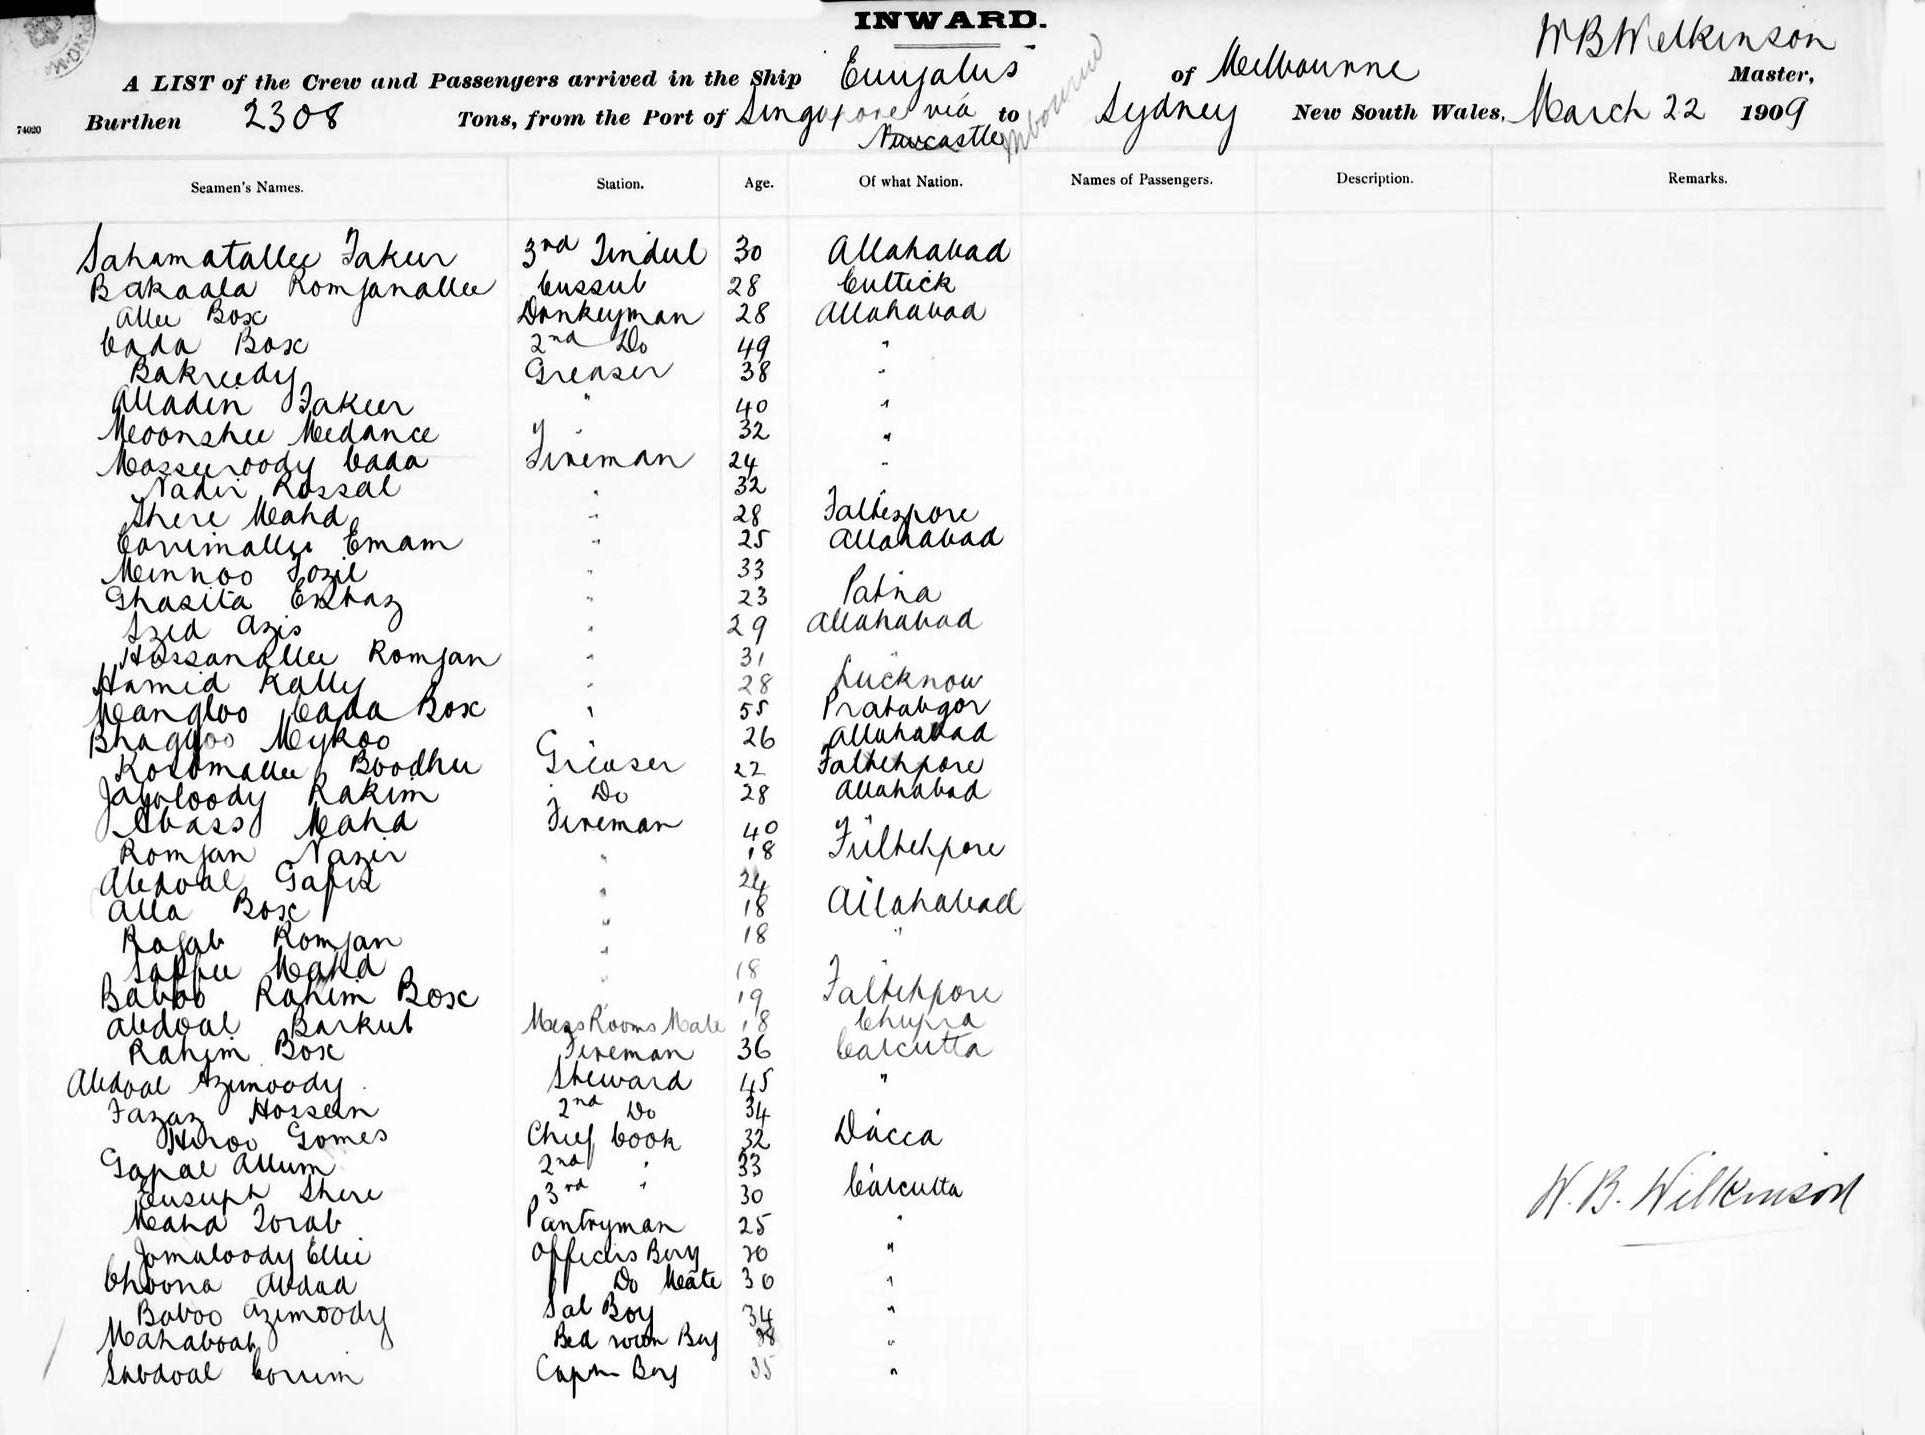 INWARD.
W B Wilkinson
A LIST of the Crew and Passengers arrived in the Ship Euryalus of Melbourne Master,
Burthen 2308 Tons, from the Port of Singapore via to Sydney New South Wales, March 22 1909
Newcastle Melbourne
74020
Seamen's Names. Station. Age. Of what Nation. Names of Passengers. Description. Remarks.
Sahamatallee Fakeer 3rd Tindul 30 Allahabad
Bakaala Romjanallee Cussub 28 Cuttick
Allee Box Donkeyman 28 Allahabad
Cada Box 2nd Do 49 "
Bakreedy Greaser 38 "
Alladin Fakeer " 40 "
Moonshee Medance " 32 "
Masseeroody Cada Fireman 24 "
Nadir Rossal " 32 "
Shere Mahd " 28 Faltehpore
Corrimallee Emam " 25 Allahabad
Mennoo Fozil " 33
Ghasita Ekhaz " 23 Patna
Syed Azis " 29 Allahabad
Hossanallee Romjan " 31 "
Hamid Kally " 28 Lucknow
Mangloo Cada Box " 55 Pratabgor
Bhaggoo Mykoo " 26 Allahabad
Kosomallee Boodhu Greaser 22 Faltehpore
Jaboloody Rakim Do 28 Allahabad
Abass Mahd Fireman 40 "
Romjan Nazir " 18 Fultehpore
Abdoal Gafir " 24 "
Alla Box " 18 Allahabad
Rajab Romjan " 18 "
Saffee Mahd " 18 "
Baboo Rahim Box " 19 Faltehpore
Abdoal Barkut Mess Rooms Mate 18 Chupra
Rahim Box Fireman 36 Calcutta
Abdoal Azimoody Steward 45 "
Fazaz Hossein 2nd Do 34 "
Heroo Gomes Chief Cook 32 Dacca
Gapal Allum 2nd " 33 "
Eusuph Shere 3rd " 30 Calcutta
W. B. Wilkinson
Maha Torab Pantryman 25 "
Jomaloody Ellie Officers Boy 20 "
Choona Abdad Do Mate 30 "
Baboo Azimoody Sal Boy 34 "
Mahaboab Bed room Boy 38 "
Subdoal Corrim Captn Boy 35 "